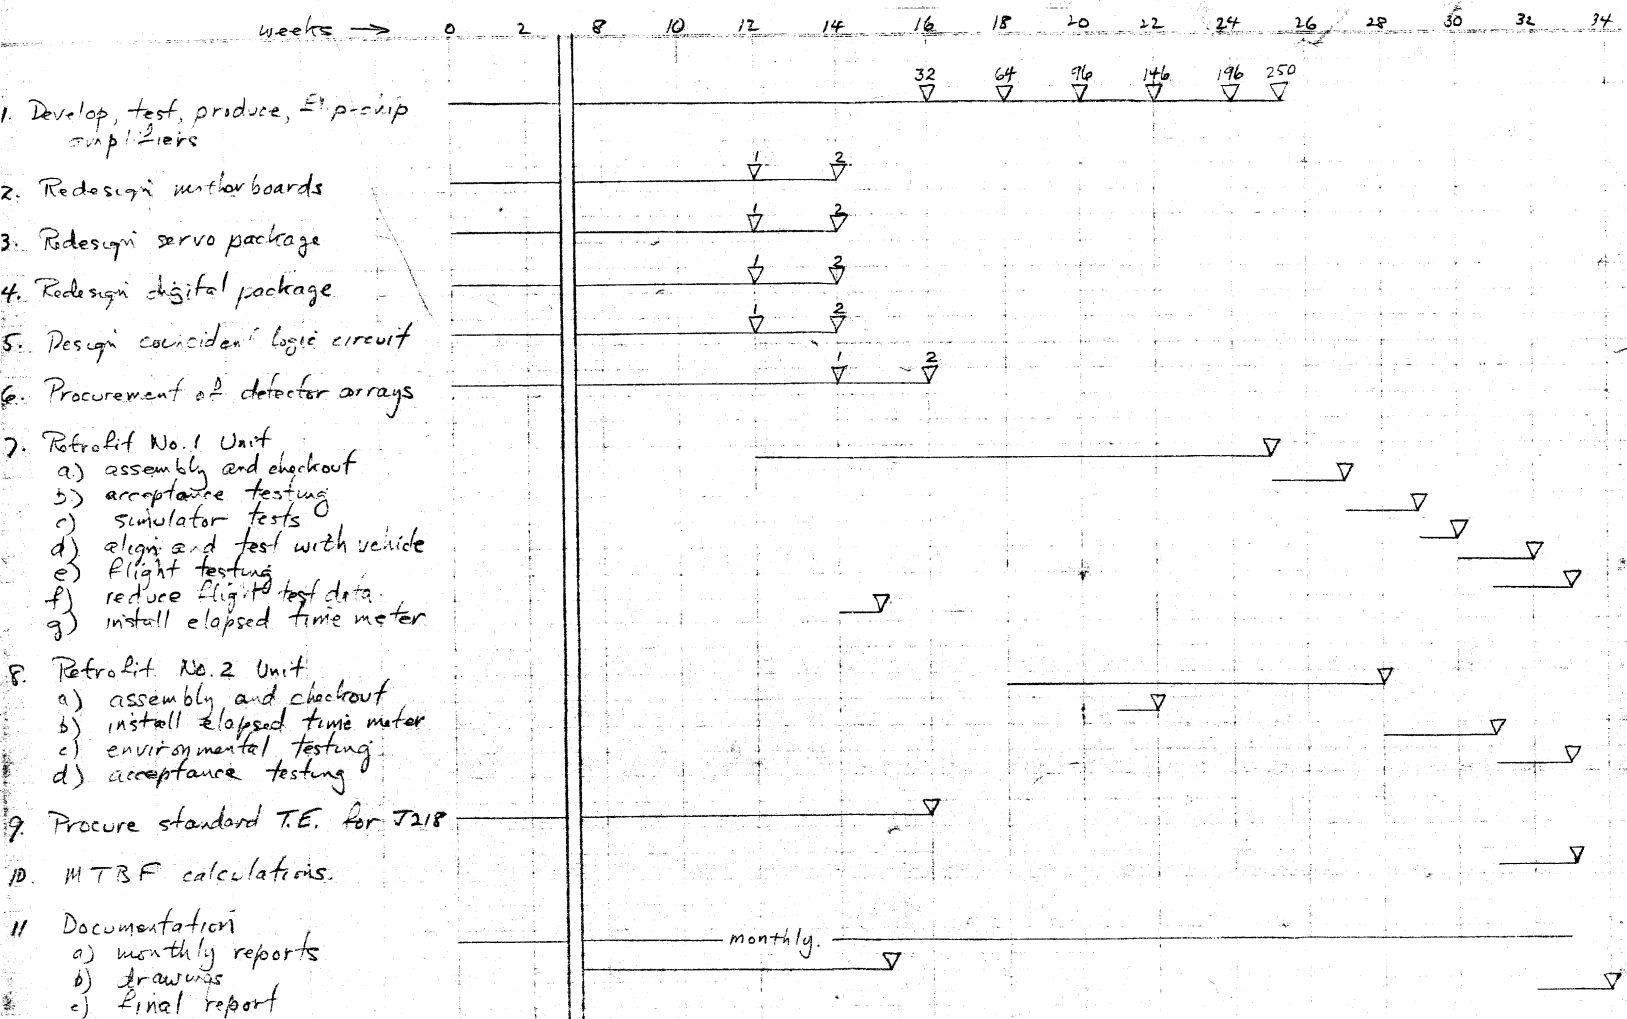 weeks → 0 2 8 10 12 14 16 18 20 22 24 26 28 30 32 34
32 64 96 146 196 250
1. Develop, test, produce, Flip-chip
amplifiers
1 2
2. Redesign motherboards
1 2
3. Redesign servo package
1 2
4. Redesign digital package
1 2
5. Design coincident logic circuit
1 2
6. Procurement of detector arrays
7. Retrofit No. 1 Unit
a) assembly and checkout
b) acceptance testing
c) simulator tests
d) align and test with vehicle
e) flight testing
f) reduce flight test data
g) install elapsed time meter
8. Retrofit No. 2 Unit
a) assembly and checkout
b) install elapsed time meter
c) environmental testing
d) acceptance testing
9. Procure standard T.E. for J218
10. MTBF calculations.
11 Documentation
a) monthly reports
monthly.
b) drawings
c) final report